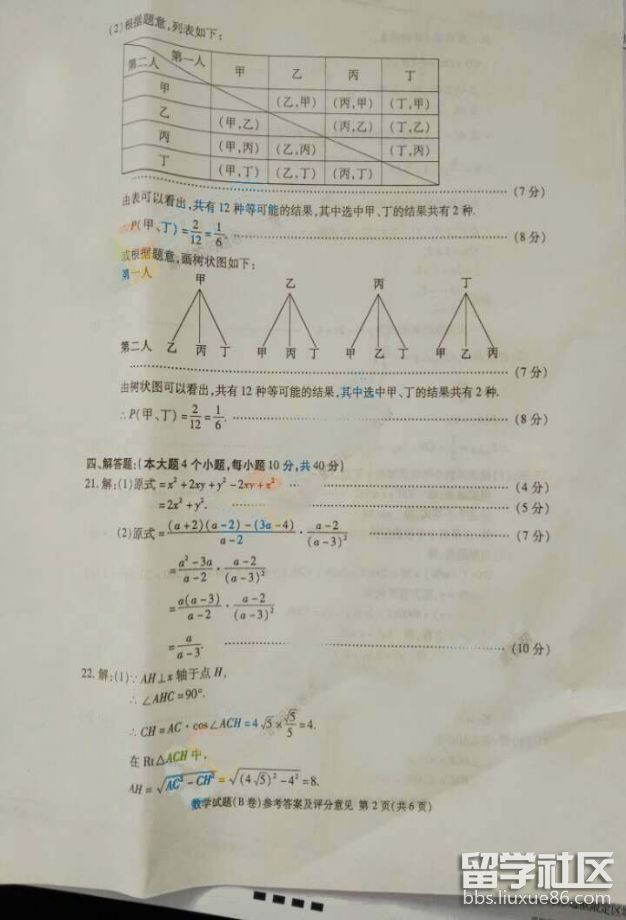 (2)根据题意,列表如下:
第一人
第二人 甲 乙 丙 丁
甲 (乙,甲) (丙,甲) (丁,甲)
乙 (甲,乙) (丙,乙) (丁,乙)
丙 (甲,丙) (乙,丙) (丁,丙)
丁 (甲,丁) (乙,丁) (丙,丁)
(7分)
由表可以看出,共有12种等可能的结果,其中选中甲、丁的结果共有2种.
P(甲、丁)=2/12=1/6. (8分)
或根据题意,画树状图如下:
第一人 甲 乙 丙 丁
第二人 乙 丙 丁 甲 丙 丁 甲 乙 丁 甲 乙 丙
(7分)
由树状图可以看出,共有12种等可能的结果,其中选中甲、丁的结果共有2种.
∴P(甲、丁)=2/12=1/6. (8分)
四、解答题:(本大题4个小题,每小题10分,共40分)
21.解:(1)原式=x²+2xy+y²-2xy+x² (4分)
=2x²+y². (5分)
(2)原式=(a+2)(a-2)-(3a-4)/a-2·a-2/(a-3)² (7分)
=a²-3a/a-2·a-2/(a-3)²
=a(a-3)/a-2·a-2/(a-3)²
=a/a-3. (10分)
22.解:(1)∵AH⊥x轴于点H,
∴∠AHC=90°.
∴CH=AC·cos∠ACH=4√5×√5/5=4.
在Rt△ACH中,
AH=√AC²-CH²=√(4√5)²-4²=8.
数学试题(B卷)参考答案及评分意见 第2页(共6页)
留学社区
bbs.liuxue86.com